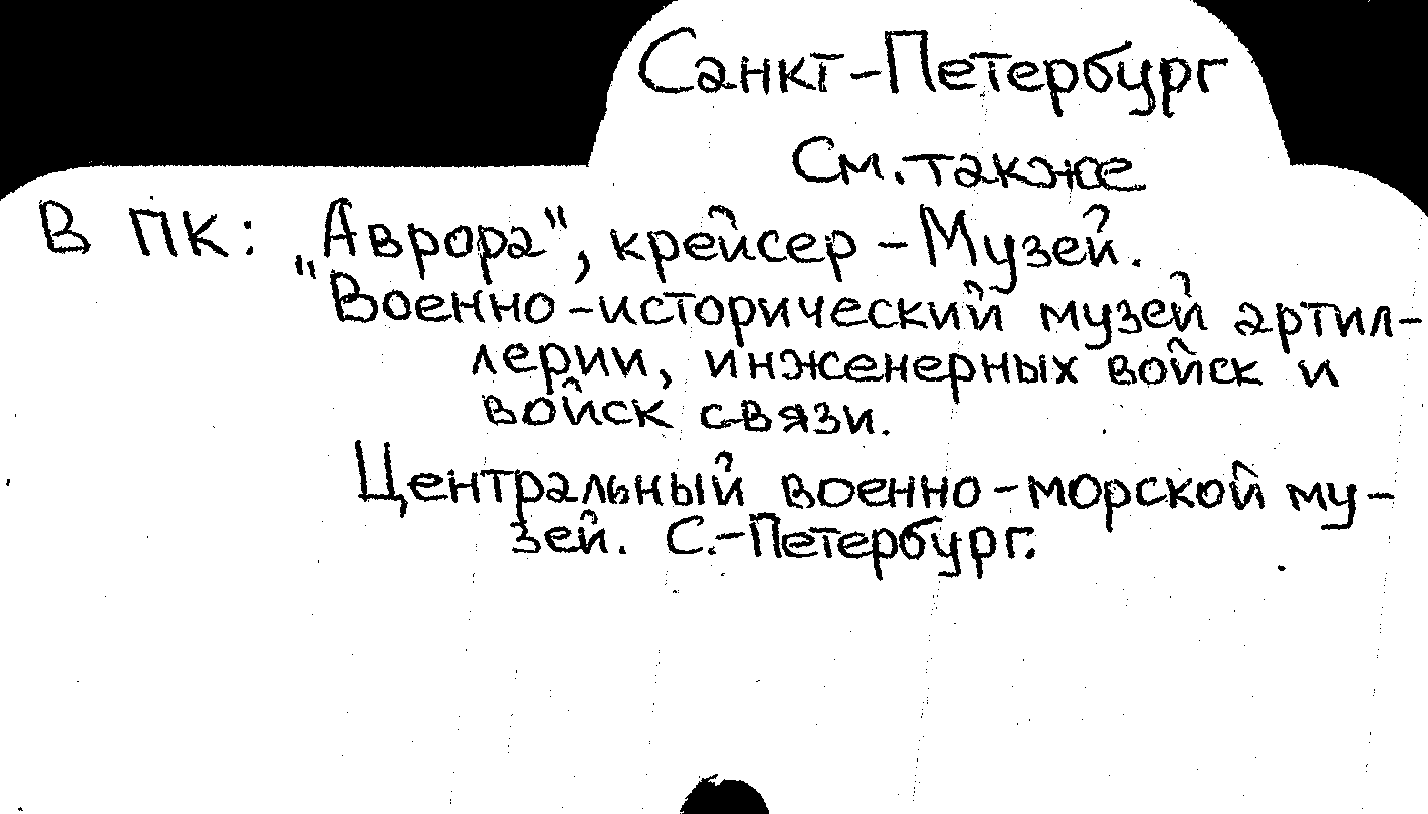 Санкт-Петербург
См. также
В ПК: "Аврора", крейсер - Музей.
"Военно-исторический музей артил-
лерии, инженерных войск и
войск связи.
Центральный военно-морской му-
зей. С.-Петербург.